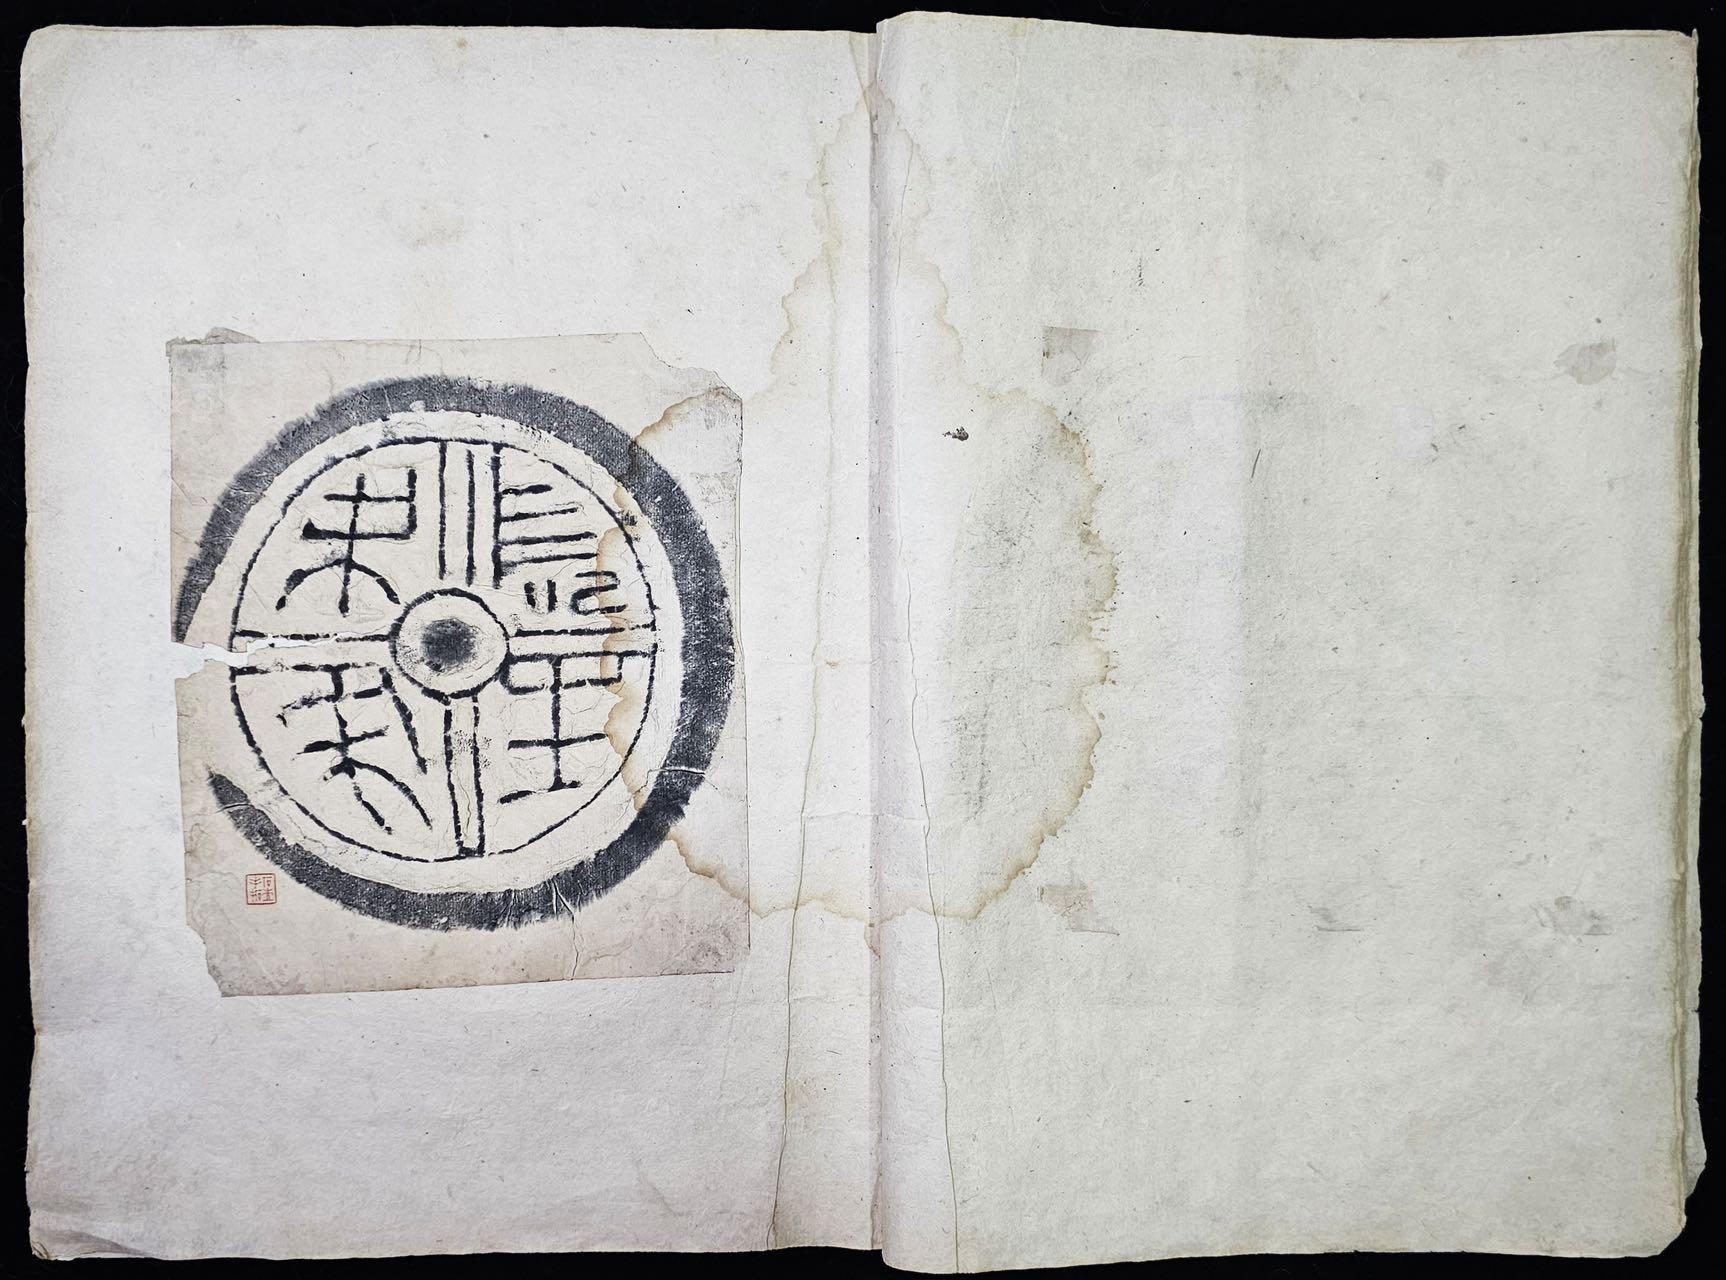 長生
未央